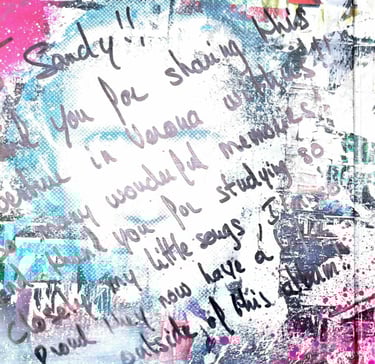 Sandy!!
you for sharing this
in Verona with us!!
many wonderful memories!
and thank you for studying so
closely my little songs! I'm so
proud they now have a
outside of this album